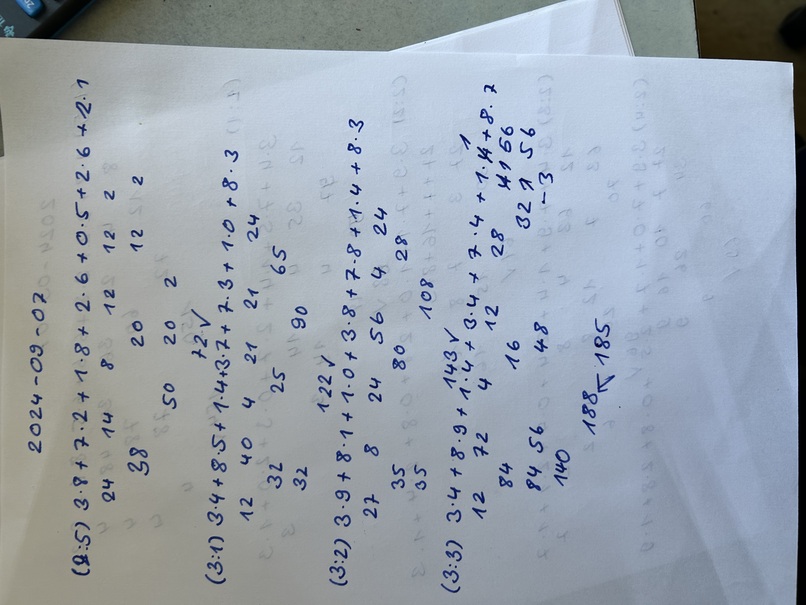 2024-09-07
(2:5) 3·8+7·2+1·8+2·6+0·5+2·6+2·1
24 14 8 12 12 2
38 20 12 2
50 20 2
72✓
(3:1) 3·4+8·5+1·4+3·7+7·3+1·0+8·3
12 40 4 21 21 24
32 25 65
32 90
122✓
(3:2) 3·9+8·1+1·0+3·8+7·8+1·4+8·3
27 8 24 56 4 24
35 80 28
35 108
143✓
(3:3) 3·4+8·9+1·4+3·4+7·4+1·1+8·7
12 72 4 12 28 1 56
84 16 32 1 56
84 56 48 -3
140
188 ↖ 185